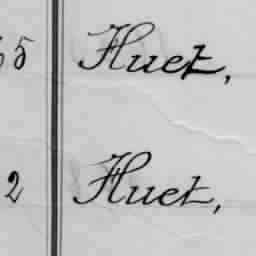 5 Huet,
2 Huet,